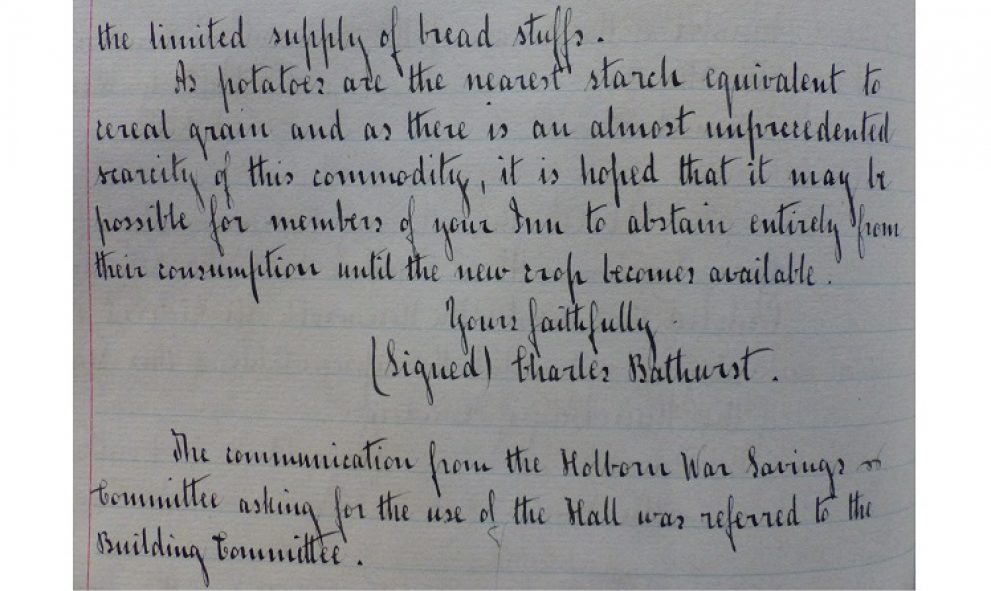 the limited supply of bread stuffs.
As potatoes are the nearest starch equivalent to
cereal grain and as there is an almost unprecedented
scarcity of this commodity, it is hoped that it may be
possible for members of your Inn to abstain entirely from
their consumption until the new crop becomes available.
Yours faithfully
(Signed) Charles Bathurst.
The communication from the Holborn War Savings
Committee asking for the use of the Hall was referred to the
Building Committee.